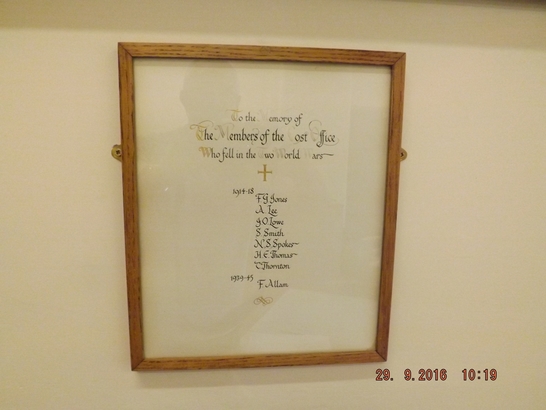 To the Memory of
The Members of the Post Office
Who fell in the Two World Wars
1914-18
F.G. Jones
A. Lee
J.O. Lowe
S. Smith
N.S. Spokes
H.E. Thomas
C. Thornton
1939-45
F. Allan
29. 9.2016 10:19